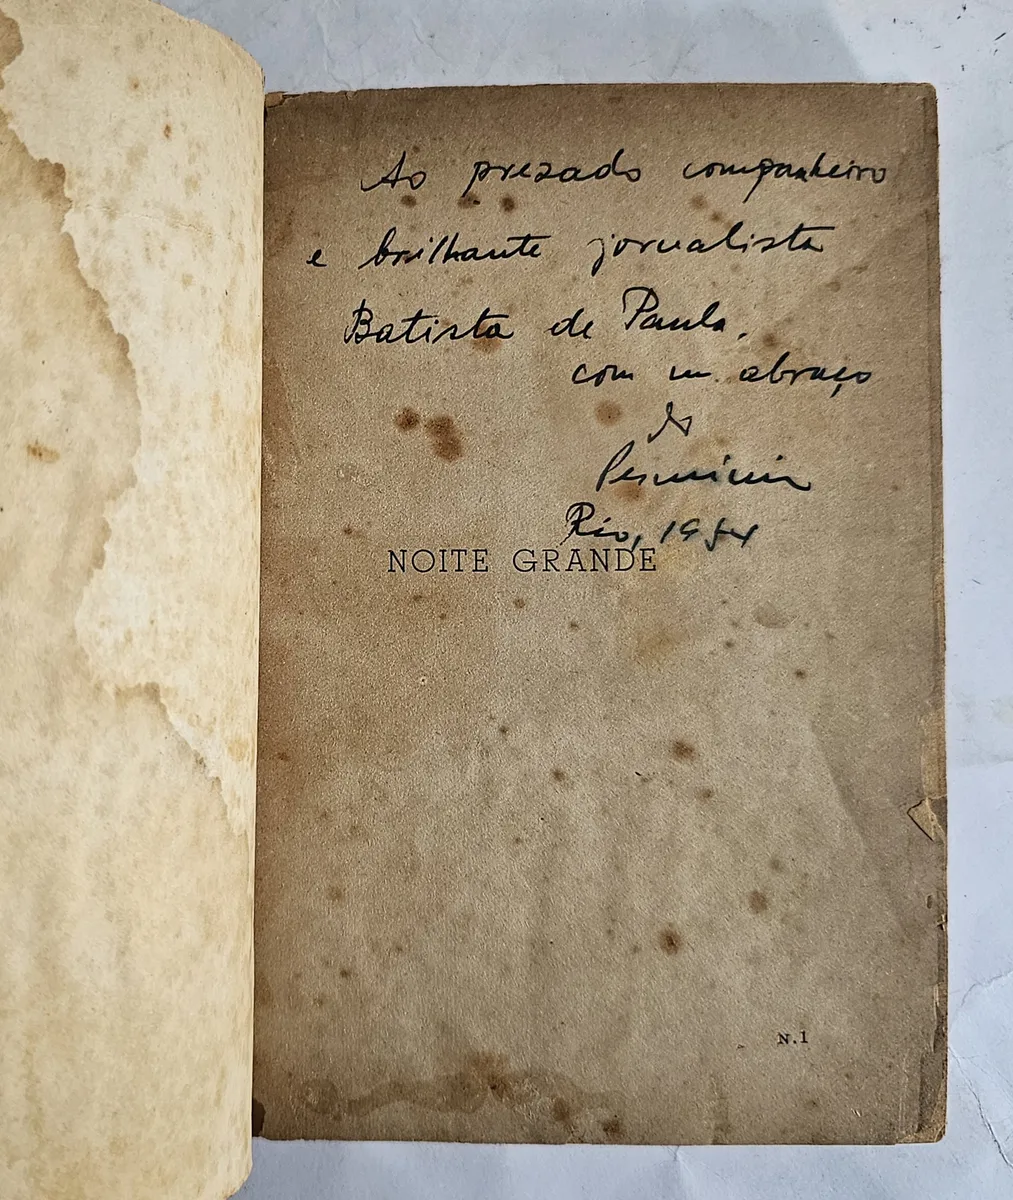 Ao prezado companheiro
e brilhante jornalista
Batista de Paula,
com um abraço
do
Permínio
Rio, 1954
NOITE GRANDE
N.1